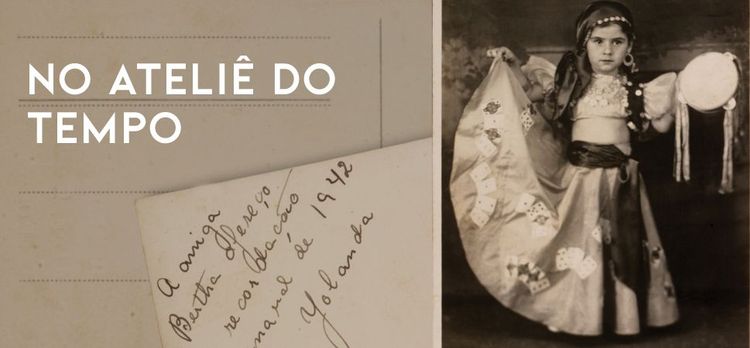 NO ATELIÊ DO
TEMPO
A amiga
Bertha ofereço
recordacão
naval de 1942
Yolanda